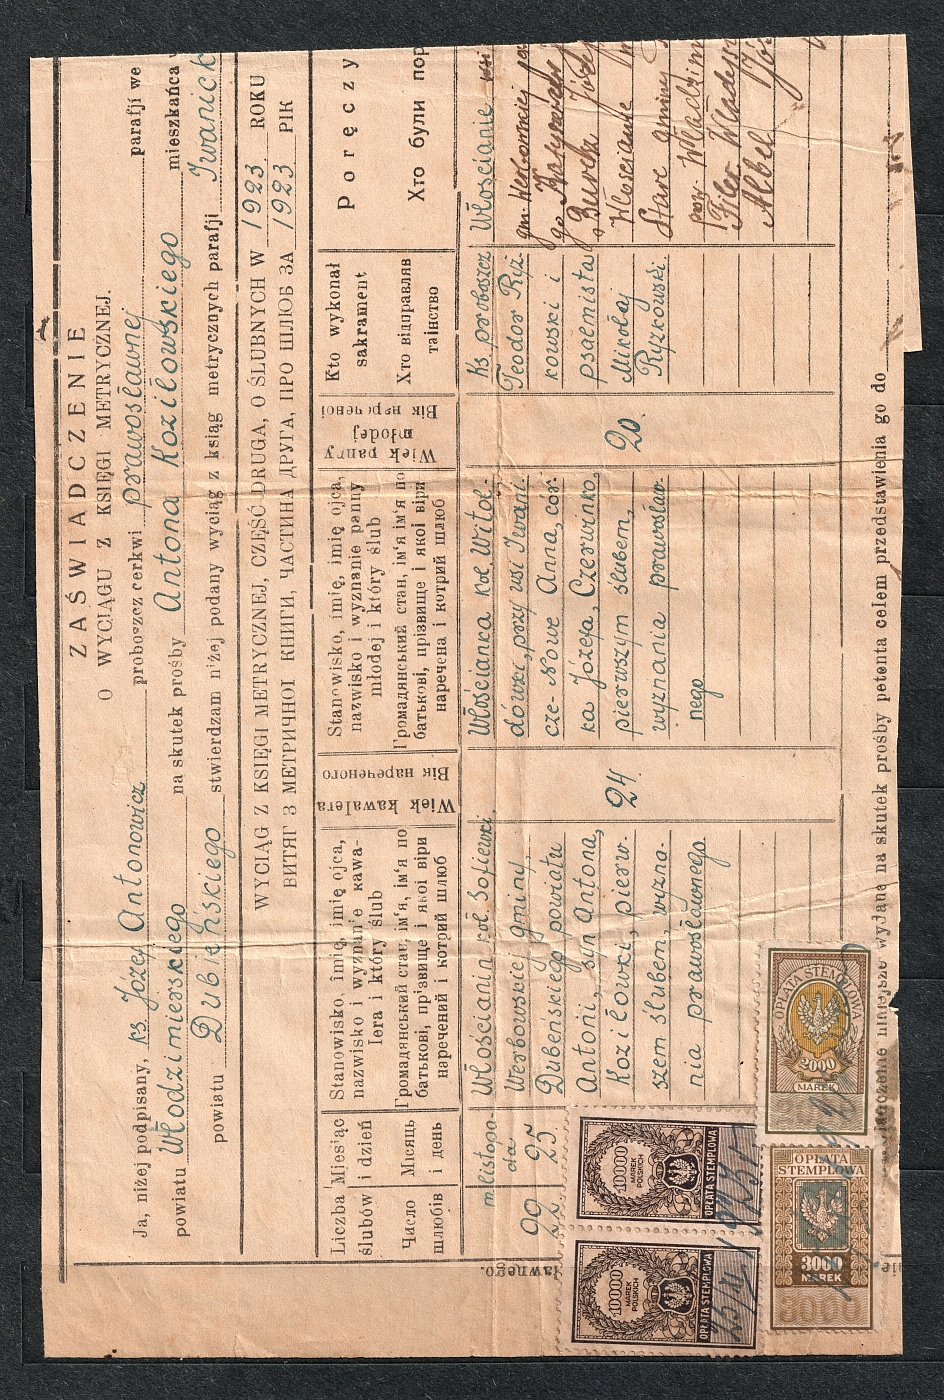 ZAŚWIADCZENIE
O WYCIĄGU Z KSIĘGI METRYCZNEJ.
Ja, niżej podpisany, ks. Józef Antonowicz proboszcz cerkwi prawosławnej parafji we
powiatu Włodzimierskiego na skutek prośby Antona Koziłowskiego mieszkańca
powiatu Dubieńskiego stwierdzam niżej podany wyciąg z ksiąg metrycznych parafji Iwanick
WYCIĄG Z KSIĘGI METRYCZNEJ, CZĘŚĆ DRUGA, O ŚLUBNYCH W 1923 ROKU
ВИТЯГ З МЕТРИЧНОІ КНИГИ, ЧАСТИНА ДРУГА, ПРО ШЛЮБ ЗА 1923 РІК
Liczba ślubów
Число шлюбів
Miesiąc i dzień
Місяць і день
Stanowisko, imię, imię ojca,
nazwisko i wyznanie kawa-
lera i który ślub
Громадянський стан, ім'я, ім'я по
батькові, прізвище і якої віри
наречений і котрий шлюб
Wiek kawalera
Вік нареченого
Stanowisko, imię, imię ojca,
nazwisko i wyznanie panny
młodej i który ślub
Громадянський стан, ім'я ім'я по
батькові, прізвище і якої віри
наречена і котрий шлюб
Wiek panny
młodej
Вік нареченоі
Kto wykonał
sakrament
Хто відправляв
таінство
Poręczy
Хто були пор
m. listopa-
da
25
Włościanin kol. Sofiewki,
Werbowskiej gminy,
Dubeńskiego powiatu
Antoni, syn Antona,
Koziłowki, pierw-
szem ślubem, wyzna-
nia prawosławnego
24
Włościanka kol. Witol-
dówki, przy wsi Iwani-
cze-Nowe Anna, cór-
ka Józefa, Czerwinko,
pierwszym ślubem,
wyznania prawosław-
nego
20.
Ks proboszcz
Teodor Ryż-
kowski i
psalmista
Mikołaj
Ryżkowski
Włościanie
gm. Werbowskiej
Burek
Włościanie
Stare gminy
pow. Włodzim
Władysł
Albel
ławnego.
niniejsze wydane na skutek prośby petenta celem przedstawienia go do
10000
MAREK
POLSKICH
OPŁATA STEMPLOWA
10000
MAREK
POLSKICH
OPŁATA STEMPLOWA
OPŁATA STEMPLOWA
2000
MAREK
OPŁATA
STEMPLOWA
3000
MAREK
3000